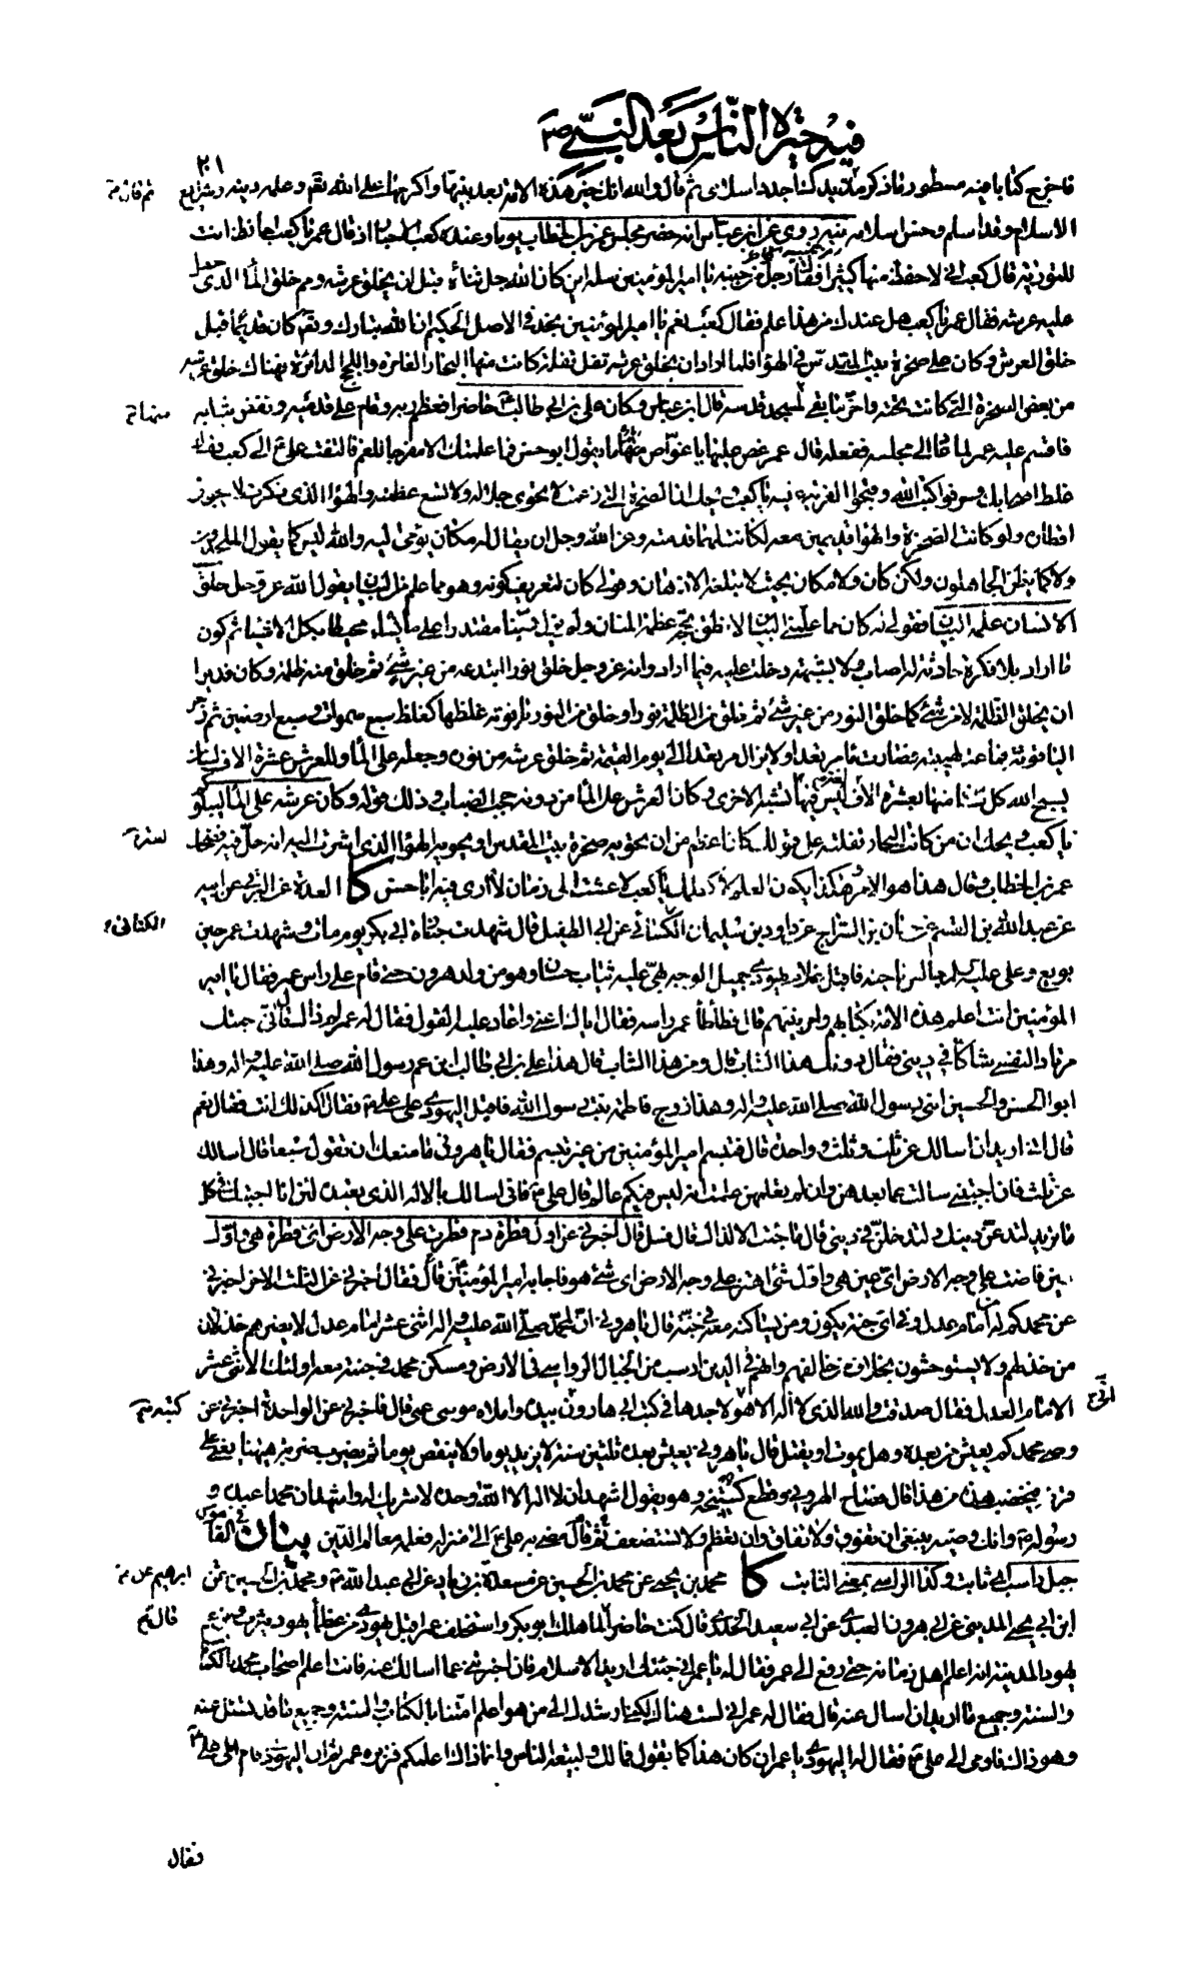 فيه حيرة الناس بعد النبي ص
٢٠١
فاخرج كتابا فيه مسطور ما ذكر مد يدك حتى اجدد اسلامي ثم قال والله انك خير هذه الامة بعد نبيها واكرمها على الله تعالى وعلمه دينه وشرايع
الاسلام وقد اسلم وحسن اسلامه روي عن ابن عباس انه حضر مجلس عمر بن الخطاب يوما وعنده كعب الحبر اذ قال عمر يا كعب احافظ انت
للتورية قال كعب اني لاحفظ منها كثيرا فقال رجل من جنبه يا امير المؤمنين سله اين كان الله جل ثناؤه قبل ان يخلق عرشه ومم خلق الماء الذي جعل
عليه عرشه فقال عمر يا كعب هل عندك من هذا علم فقال كعب نعم يا امير المؤمنين نجد في الاصل الحكيم ان الله تبارك وتعالى كان قديما قبل
خلق العرش وكان على صخرة بيت المقدس في الهواء فلما اراد ان يخلق عرشه تفل تفلة كانت منها البحار الغامرة واللجج الدائرة فهناك خلق عرشه
من بعض الصخرة التي كانت تحته واخر ما بقي لمسجد قدسه قال ابن عباس وكان علي بن ابي طالب حاضرا فعظم ربه وقام على قدميه ونفض ثيابه
فاقسم عليه عمر لما عاد الى مجلسه ففعل قال عمر غص عليها يا غواص ما يقول ابو حسن فما علمتك الا مفرجا للغم فالتفت علي الى كعب فقال
غلط اصحابك وحرفوا كتب الله وفتحوا الفرية عليه يا كعب ويحك ان الصخرة التي زعمت لا تحوي جلاله ولا تسع عظمته والهواء الذي ذكرت لا يجوز
اقطاره ولو كانت الصخرة والهواء قديمين معه لكانت لهما قدمته وعز الله وجل ان يقال له مكان يومى اليه والله ليس كما يقول الملحدون
ولا كما يظن الجاهلون ولكن كان ولا مكان بحيث لا تبلغه الاذهان وقولي كان لتعريف كونه وهو مما علم من البيان يقول الله عز وجل خلق
الانسان علمه البيان فقولي له كان مما علمني البيان لانطق بحجج عظمة المنان ولم يزل ربنا مقتدرا على ما يشاء محيطا بكل الاشياء ثم كون
ما اراد بلا فكرة حادثة له اصاب ولا شبهة دخلت عليه فيما اراد وانه عز وجل خلق نورا ابتدعه من غير شيء ثم خلق منه ظلمة وكان قديرا
ان يخلق الظلمة لا من شيء كما خلق النور من غير شيء ثم خلق من الظلمة نورا وخلق من النور ياقوتة غلظها كغلظ سبع سموات وسبع ارضين ثم زجر
الياقوتة فماعت لهيبته فصارت ماء مرتعدا ولا يزال مرتعدا الى يوم القيمة ثم خلق عرشه من نوره وجعله على الماء وللعرش عشرة الاف لسان
يسبح الله كل لسان منها بعشرة الاف لغة ليس فيها لغة تشبه الاخرى وكان العرش على الماء من دونه حجب الضباب وذلك قوله وكان عرشه على الماء ليبلوكم
يا كعب ويحك ان من كانت البحار تفلته على قولك كان اعظم من ان تحويه صخرة بيت المقدس او يحويه الهواء الذي اشرت اليه انه حل فيه فضحك
عمر بن الخطاب وقال هذا هو الامر وهكذا يكون العلم لا كعلمك يا كعب لا عشت الى زمان لا ارى فيه ابا حسن كا العدة عن البرقي عن ابيه
عن عبد الله بن القسم عن حنان بن السراج عن داود بن سليمان الكسائي عن ابي الطفيل قال شهدت جنازة ابي بكر يوم مات وشهدت عمر حين
بويع وعلي عليه السلام جالس ناحية فاقبل غلام يهودي جميل الوجه بهي عليه ثياب حسان وهو من ولد هرون حتى قام على راس عمر فقال يا امير
المؤمنين انت اعلم هذه الامة بكتابهم وامر نبيهم قال فطأطأ عمر راسه فقال اياك اعني واعاد عليه القول فقال له عمر لم ذاك قال اني جئتك
مرتاد النفسي شاكا في ديني فقال دونك هذا الشاب قال ومن هذا الشاب قال هذا علي بن ابي طالب ابن عم رسول الله صلى الله عليه واله وهذا
ابو الحسن والحسين ابني رسول الله صلى الله عليه واله وهذا زوج فاطمة بنت رسول الله فاقبل اليهودي على علي فقال اكذلك انت فقال نعم
قال اني اريد ان اسالك عن ثلث وثلث وواحدة قال فتبسم امير المؤمنين من غير تبسم فقال يا هروني ما منعك ان تقول سبعا قال اسالك
عن ثلث فان اجبتني سالت عما بعدهن وان لم تعلمهن علمت انه ليس فيكم عالم قال علي فاني اسالك بالاله الذي تعبده لئن انا اجبتك في كل
ما تريد لتدعن دينك ولتدخلن في ديني قال ما جئت الا لذاك قال فسل قال اخبرني عن اول قطرة دم قطرت على وجه الارض اي قطرة هي واول
عين فاضت على وجه الارض اي عين هي واول شيء اهتز على وجه الارض اي شيء هو فاجابه امير المؤمنين قال فقال اخبرني عن الثلث الاخر اخبرني
عن محمد كم له امام عدل وفي اي جنة يكون ومن يساكنه معه في جنته قال يا هروني ان لمحمد صلى الله عليه واله اثني عشر امام عدل لا يضرهم خذلان
من خذلهم ولا يستوحشون بخلاف من خالفهم وانهم في الدين ارسب من الجبال الرواسي في الارض ومسكن محمد في جنته معه اولئك الاثني عشر
الامام العدل فقال صدقت والله الذي لا اله الا هو لاجدها في كتب ابي هارون بيده واملاه موسى عمي قال فاخبرني عن الواحدة اخبرني عن
وصي محمد كم يعيش من بعده وهل يموت او يقتل قال يا هروني يعيش بعده ثلثين سنة لا يزيد يوما ولا ينقص يوما ثم يضرب ضربة ههنا يعني على
قرنه فيخضب هذه من هذا قال فصاح الهروني وقطع كستيجه وهو يقول اشهد ان لا اله الا الله وحده لا شريك له واشهد ان محمدا عبده و
رسوله وانك وصيه ينبغي ان تفوق ولا تفاق وان تعظم ولا تستضعف ثم قال مضى به علي الى منزله فعلمه معالم الدين بيان القا
جبل راسب اي ثابت وكذا الراسي بمعنى الثابت كا محمد بن يحيى عن محمد بن الحسين عن مسعدة بن زياد عن ابي عبد الله ومحمد بن الحسين عن
ابن ابي يحيى المديني عن ابي هرون العبدي عن ابي سعيد الخدري قال كنت حاضرا لما هلك ابو بكر واستخلف عمر اقبل يهودي من عظماء يهود يثرب وتزعم
يهود المدينة انه اعلم اهل زمانه حتى رفع الى عمر فقال له يا عمر اني جئتك اريد الاسلام فان اخبرتني عما اسالك عنه فانت اعلم اصحاب محمد بالكتاب
والسنة وجميع ما اريد ان اسال عنه قال فقال له عمر اني لست هناك لكني ارشدك الى من هو اعلم امتنا بالكتاب والسنة وجميع ما قد تسئل عنه
وهو ذاك فاومى الى علي فقال له اليهودي يا عمر ان كان هذا كما تقول فما لك ولبيعة الناس وانما ذاك اعلمكم فزبره عمر ثم ان اليهودي قام الى علي
فقال